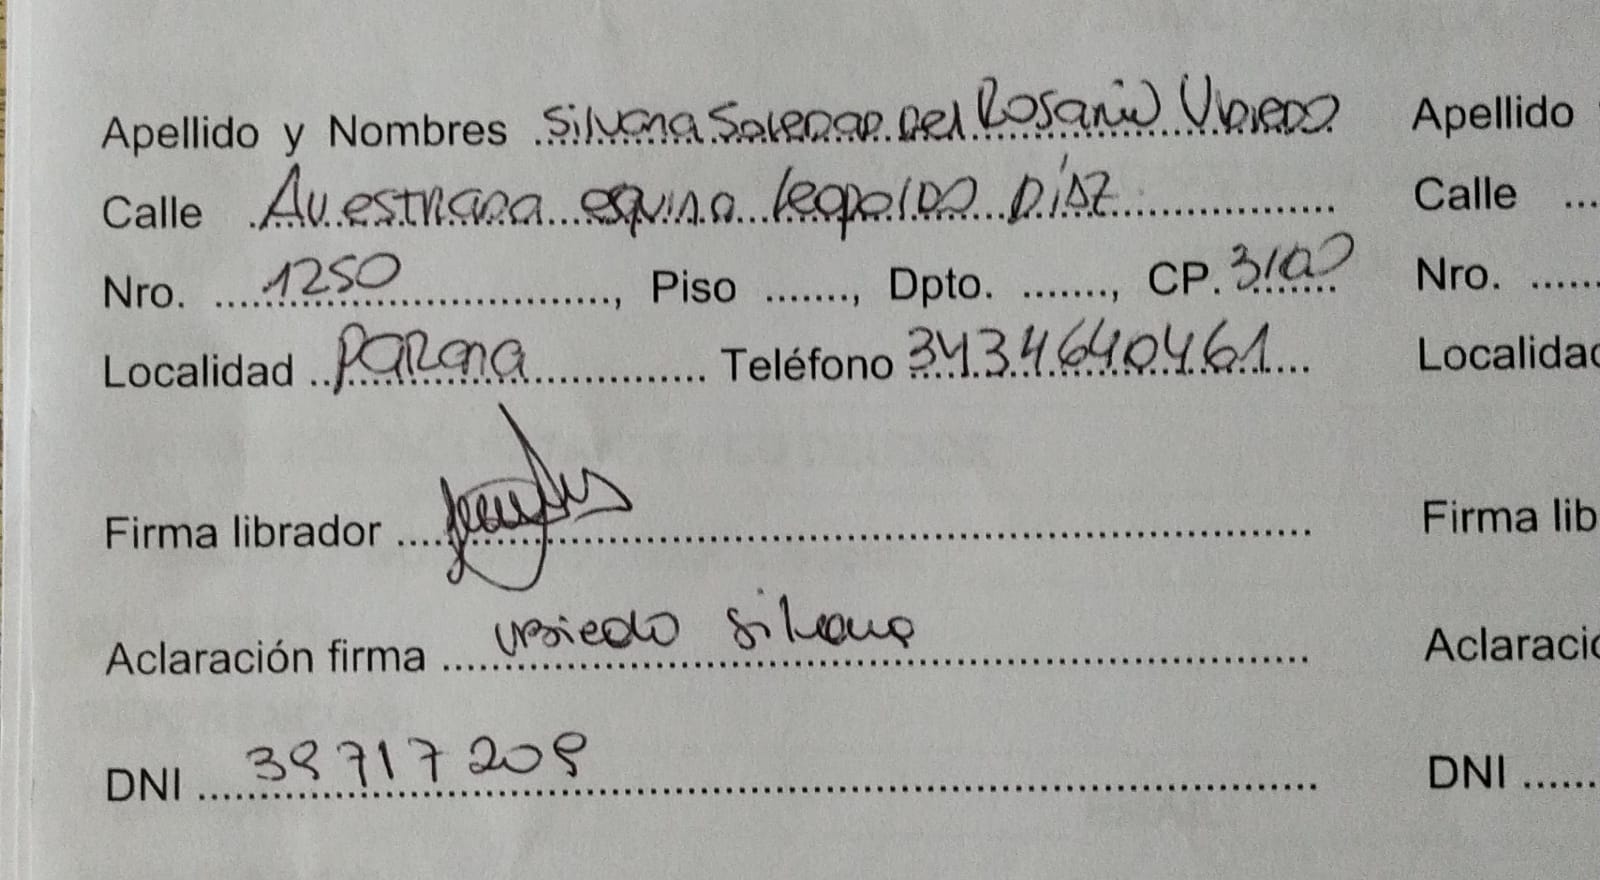 Apellido y Nombres Silvana Soledad del Rosario Ubiedo Apellido
Calle Av estrada esquina leopoldo Díaz Calle
Nro. 1250, Piso ......., Dpto. ......., CP. 3100 Nro.
Localidad Parana Teléfono 3434640461 Localidad
Firma librador Firma lib
Aclaración firma Ubiedo Silvana Aclaració
DNI 39717209 DNI